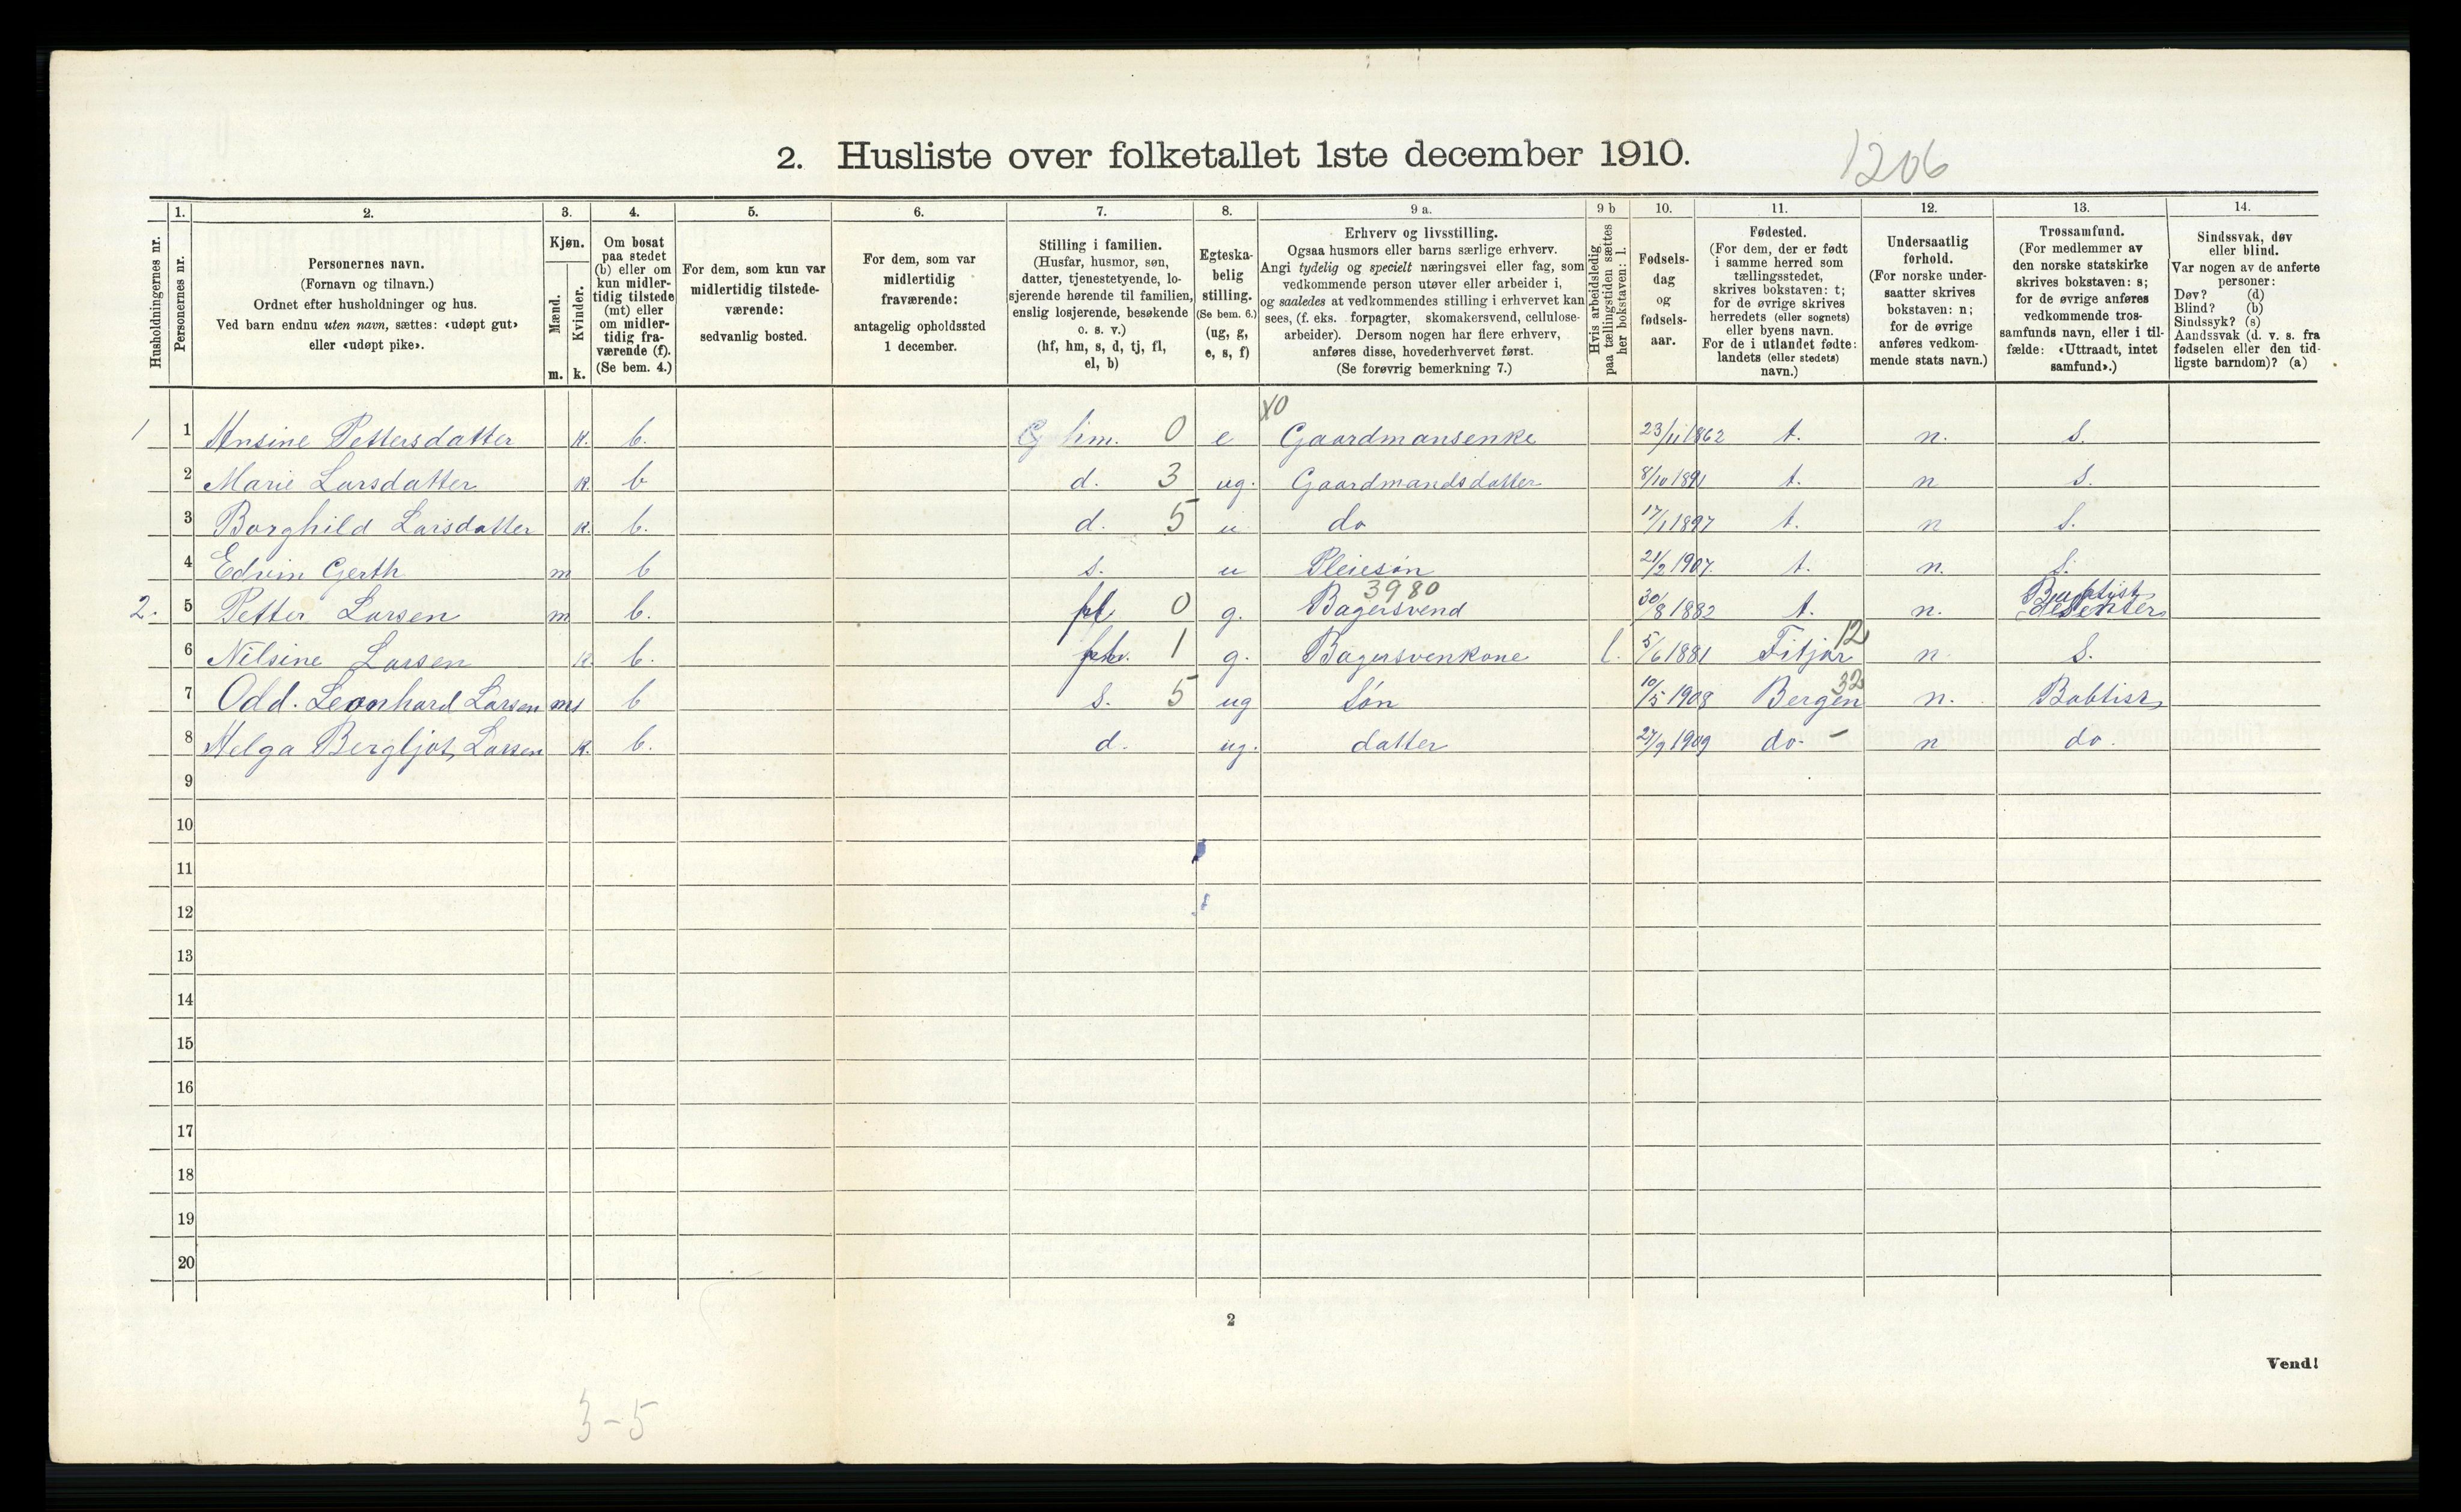 2. Husliste over folketallet 1ste december 1910.
1206
Husholdningernes nr.
1.
Personernes nr.
2.
Personernes navn.
(Fornavn og tilnavn.)
Ordnet efter husholdninger og hus.
Ved barn endnu uten navn, sættes: «udøpt gut»
eller «udøpt pike».
3.
Kjøn.
Mænd.
Kvinder.
m. k.
4.
Om bosat
paa stedet
(b) eller om
kun midler-
tidig tilstede
(mt) eller
om midler-
tidig fra-
værende (f).
(Se bem. 4.)
5.
For dem, som kun var
midlertidig tilstede-
værende:
sedvanlig bosted.
6.
For dem, som var
midlertidig
fraværende:
antagelig opholdssted
1 december.
7.
Stilling i familien.
(Husfar, husmor, søn,
datter, tjenestetyende, lo-
sjerende hørende til familien,
enslig losjerende, besøkende
o. s. v.)
(hf, hm, s, d, tj, fl,
el, b)
8.
Egteska-
belig
stilling.
(Se bem. 6.)
(ug, g,
e, s, f)
9 a.
Erhverv og livsstilling.
Ogsaa husmors eller barns særlige erhverv.
Angi tydelig og specielt næringsvei eller fag, som
vedkommende person utøver eller arbeider i,
og saaledes at vedkommendes stilling i erhvervet kan
sees, (f. eks. forpagter, skomakersvend, cellulose-
arbeider). Dersom nogen har flere erhverv,
anføres disse, hovederhvervet først.
(Se forøvrig bemerkning 7.)
9 b
Hvis arbeidsledig
paa tællingstiden sættes
her bokstaven: l.
10.
Fødsels-
dag
og
fødsels-
aar.
11.
Fødested.
(For dem, der er født
i samme herred som
tællingsstedet,
skrives bokstaven: t;
for de øvrige skrives
herredets (eller sognets)
eller byens navn.
For de i utlandet fødte:
landets (eller stedets)
navn.)
12.
Undersaatlig
forhold.
(For norske under-
saatter skrives
bokstaven: n;
for de øvrige
anføres vedkom-
mende stats navn.)
13.
Trossamfund.
(For medlemmer av
den norske statskirke
skrives bokstaven: s;
for de øvrige anføres
vedkommende tros-
samfunds navn, eller i til-
fælde: «Uttraadt, intet
samfund».)
14.
Sindssvak, døv
eller blind.
Var nogen av de anførte
personer:
Døv? (d)
Blind? (b)
Sindssyk? (s)
Aandssvak (d. v. s. fra
fødselen eller den tid-
ligste barndom)? (a)
X0
1 1 Ansine Pettersdatter k. b. hm. 0 e Gaardmansenke 23/11 1862 t. n. s.
2 Marie Larsdatter k. b d. 3 ug. Gaardmandsdatter 8/10 1891 t. n s.
3 Borghild Larsdatter k. b. d. 5 u do 17/1 1897 t. n s.
4 Edvin Gerth m b s. u Pleiesøn 21/2 1907. t. n. s.
3980 Baptist
2. 5 Petter Larsen m b. fl 0 g. Bagersvend 30/8 1882 t. n.
6 Nilsine Larsen k. b. 1 g. Bagersvenkone l. 5/6 1881 Fitjar 12 n s.
7 Odd. Leonhard Larsen m b s. 5 ug Søn 10/5 1908 Bergen 32 n. Babtist
8 Helga Bergljot Larsen k. b. d. ug. datter 27/9 1909 do - n do.
9
10
11
12
13
14
15
16
17
18
19
20
2
Vend!
3-5